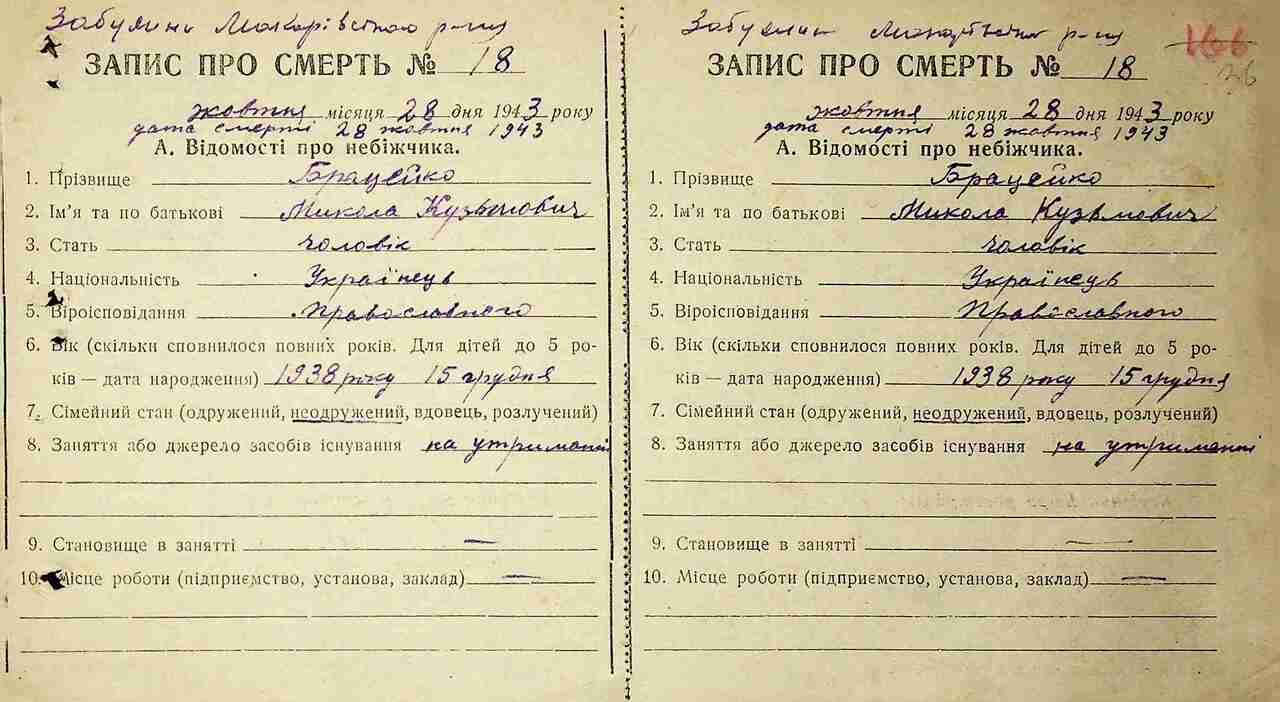 Забуяння Макарівського р-ну
ЗАПИС ПРО СМЕРТЬ № 18
жовтня місяця 28 дня 1943 року
дата смерті 28 жовтня 1943
А. Відомості про небіжчика.
1. Прізвище Брацейко
2. Ім'я та по батькові Микола Кузьмович
3. Стать чоловік
4. Національність Українець
5. Віросповідання Православного
6. Вік (скільки сповнилося повних років. Для дітей до 5 ро-
ків — дата народження) 1938 року 15 грудня
7. Сімейний стан (одружений, неодружений, вдовець, розлучений)
8. Заняття або джерело засобів існування на утриманні
9. Становище в занятті —
10. Місце роботи (підприємство, установа, заклад) —
166
36
ЗАПИС ПРО СМЕРТЬ № 18
жовтня місяця 28 дня 1943 року
дата смерті 28 жовтня 1943
А. Відомості про небіжчика.
1. Прізвище Брацейко
2. Ім'я та по батькові Микола Кузьмович
3. Стать чоловік
4. Національність Українець
5. Віросповідання Православного
6. Вік (скільки сповнилося повних років. Для дітей до 5 ро-
ків — дата народження) 1938 року 15 грудня
7. Сімейний стан (одружений, неодружений, вдовець, розлучений)
8. Заняття або джерело засобів існування на утриманні
9. Становище в занятті —
10. Місце роботи (підприємство, установа, заклад) —